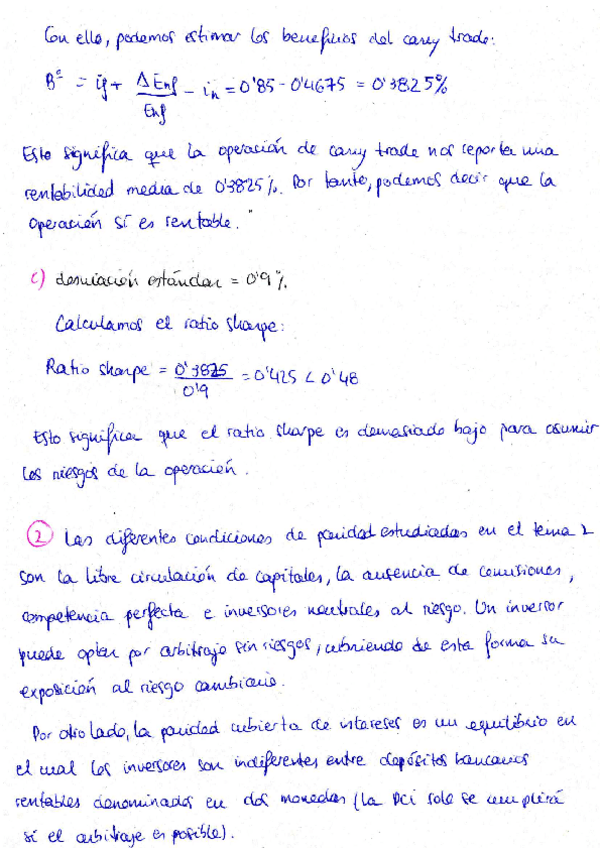 Con ello, podemos estimar los beneficios del carry trade:
Bᵉ = if + ΔEn/f / En/f − in = 0'85 − 0'4675 = 0'3825%
Esto significa que la operación de carry trade nos reporta una
rentabilidad media de 0'3825%. Por tanto, podemos decir que la
operación sí es rentable.
c) desviación estándar = 0'9%
Calculamos el ratio sharpe:
Ratio sharpe = 0'3825 / 0'9 = 0'425 < 0'48
Esto significa que el ratio sharpe es demasiado bajo para asumir
los riesgos de la operación.
2 Las diferentes condiciones de paridad estudiadas en el tema 2
son la libre circulación de capitales, la ausencia de comisiones,
competencia perfecta e inversores neutrales al riesgo. Un inversor
puede optar por arbitraje sin riesgos, cubriendo de esta forma su
exposición al riesgo cambiario.
Por otro lado, la paridad cubierta de intereses es un equilibrio en
el cual los inversores son indiferentes entre depósitos bancarios
rentables denominados en dos monedas (la PCI solo se cumplirá
si el arbitraje es posible).